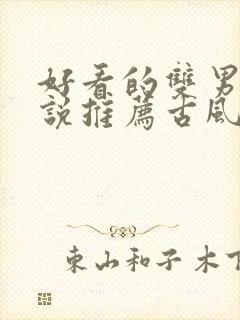 好看的雙男
說推薦古風
東山和子木下